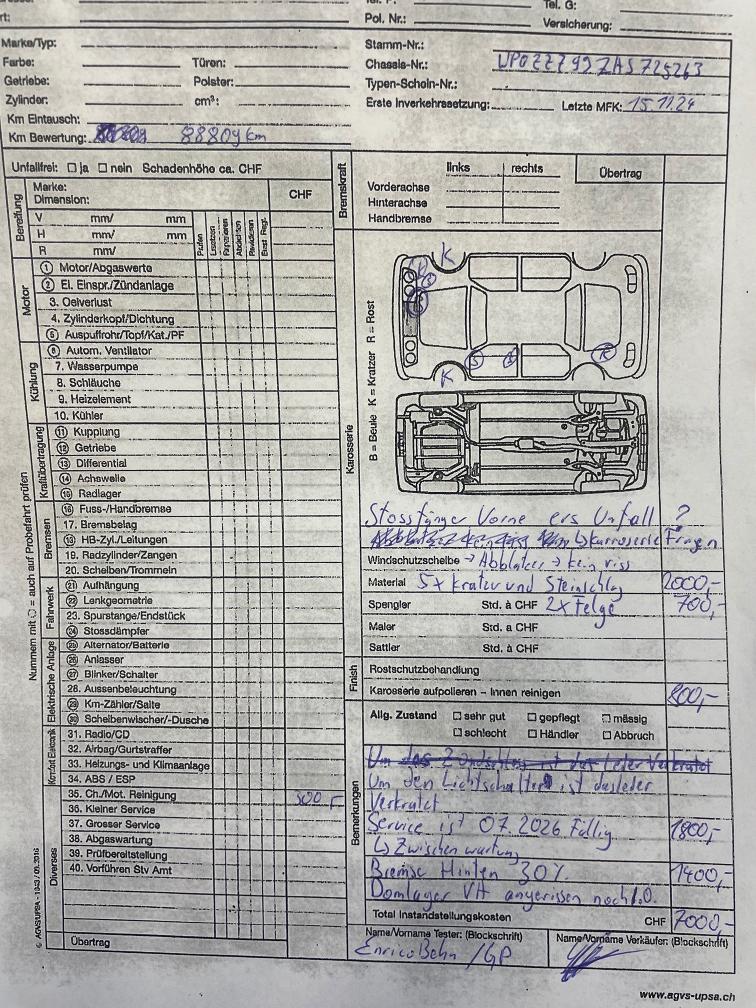 Tel. G:
Pol. Nr.: Versicherung:
Marke/Typ: Stamm-Nr.:
Farbe: Türen: Chassis-Nr.: WP0ZZZ99ZAS725263
Getriebe: Polster: Typen-Schein-Nr.:
Zylinder: cm³: Erste Inverkehrssetzung: Letzte MFK: 15.11.24
Km Eintausch:
Km Bewertung: 88809 km
Unfallfrei: ☐ ja ☐ nein Schadenhöhe ca. CHF
Bremskraft links rechts Übertrag
Vorderachse
Hinterachse
Handbremse
Bereifung
Marke:
Dimension: CHF
V mm/ mm
H mm/ mm
R mm/
Prüfen Ersetzen Reparieren Abdichten Revidieren Best. Regl.
Motor
1 Motor/Abgaswerte
2 El. Einspr./Zündanlage
3. Oelverlust
4. Zylinderkopf/Dichtung
5 Auspuffrohr/Topf/Kat./PF
Kühlung
6 Autom. Ventilator
7. Wasserpumpe
8. Schläuche
9. Heizelement
10. Kühler
Kraftübertragung
11 Kupplung
12 Getriebe
13 Differential
14 Achswelle
15 Radlager
Bremsen
16 Fuss-/Handbremse
17. Bremsbelag
18 HB-Zyl./Leitungen
19. Radzylinder/Zangen
20. Scheiben/Trommeln
Fahrwerk
21 Aufhängung
22 Lenkgeometrie
23. Spurstange/Endstück
24 Stossdämpfer
Elektrische Anlage
25 Alternator/Batterie
26 Anlasser
27 Blinker/Schalter
28. Aussenbeleuchtung
29 Km-Zähler/Saite
30 Scheibenwischer/-Dusche
Komfort Elektronik
31. Radio/CD
32. Airbag/Gurtstraffer
33. Heizungs- und Klimaanlage
34. ABS / ESP
Diverses
35. Ch./Mot. Reinigung
36. Kleiner Service
37. Grosser Service
38. Abgaswartung
39. Prüfbereitstellung
40. Vorführen Stv Amt
Übertrag
Nummern mit ○ = auch auf Probefahrt prüfen
© AGVS/UPSA - 1043 / 01.2016
Karosserie
B = Beule K = Kratzer R = Rost
K
K
Stossfänger Vorne ers Unfall ?
↳ Karrosserie Fragen
Windschutzscheibe → Abblatzer → kein riss
Material 5x Kratzer und Steinschlag 2000,-
Spengler Std. à CHF 2x Felge 700,-
Maler Std. a CHF
Sattler Std. à CHF
Finish
Rostschutzbehandlung
Karosserie aufpolieren – Innen reinigen 800,-
Allg. Zustand ☐ sehr gut ☐ gepflegt ☐ mässig
☐ schlecht ☐ Händler ☐ Abbruch
Bemerkungen
Um den Lichtschalter ist das leder
Verkratzt
Service ist 07.2026 Fällig 1800,-
↳ Zwischen wartung
Bremse Hinten 30% 1400,-
Domlager VH angerissen noch i.O.
Total Instandstellungskosten CHF 7000,-
Name/Vorname Tester: (Blockschrift) Name/Vorname Verkäufer: (Blockschrift)
Enrico Behn / GP
www.agvs-upsa.ch